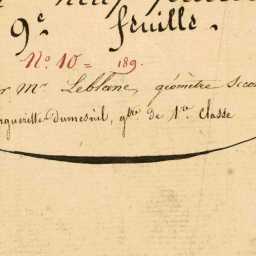 9e feuille.
No. 10 = 189.
r Mr Leblanc, géomètre Secon
rgueritte-Dumesnil, gtre de 1re Classe